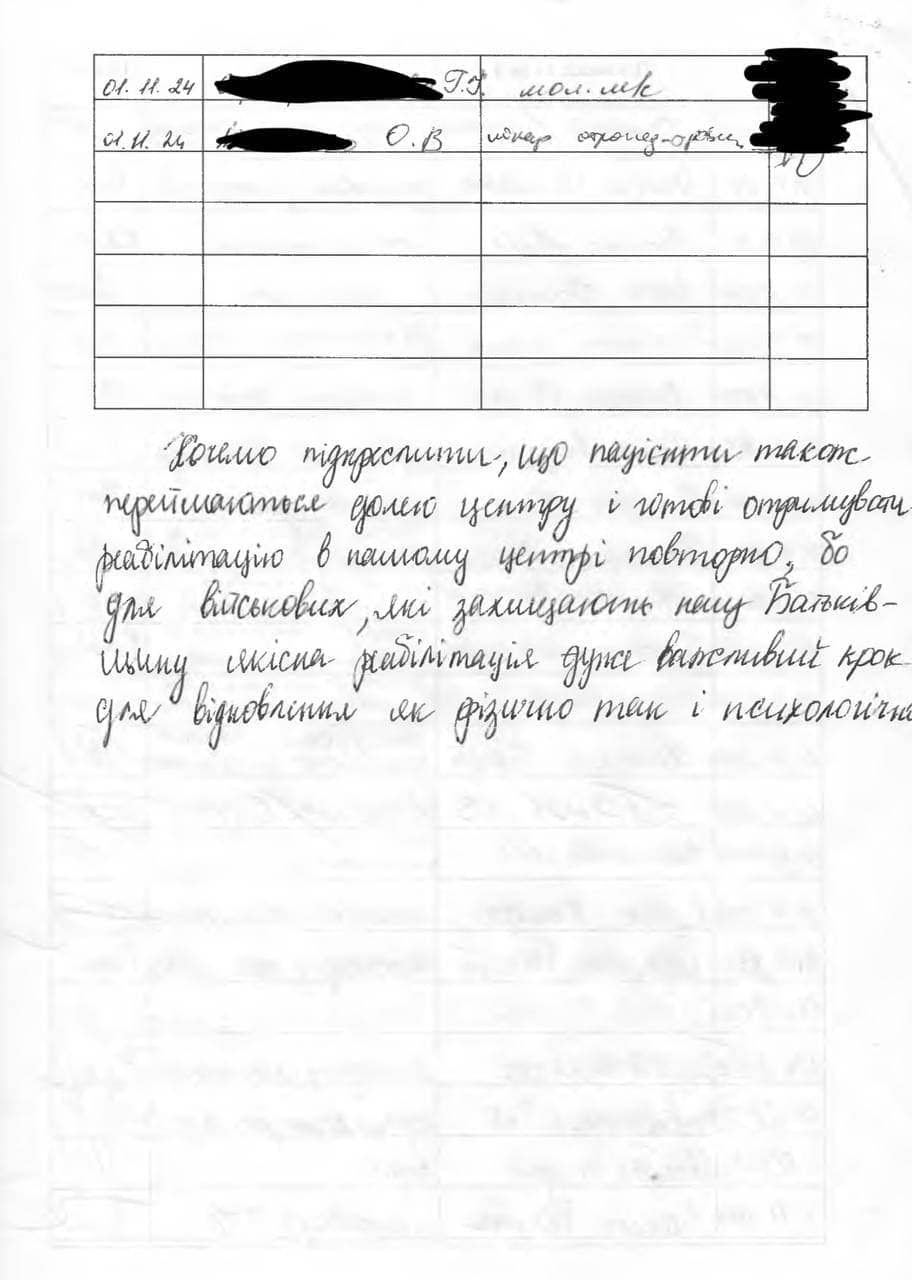 01.11.24 Г.Г. мол.лек
01.11.24 О.В лікар ортопед-
Хочемо підкреслити, що пацієнти також
переймаються долею центру і готові отримувати
реабілітацію в нашому центрі повторно, бо
для військових, які захищають нашу Батьків-
щину якісна реабілітація дуже важливий крок
для відновлення як фізично так і психологічно